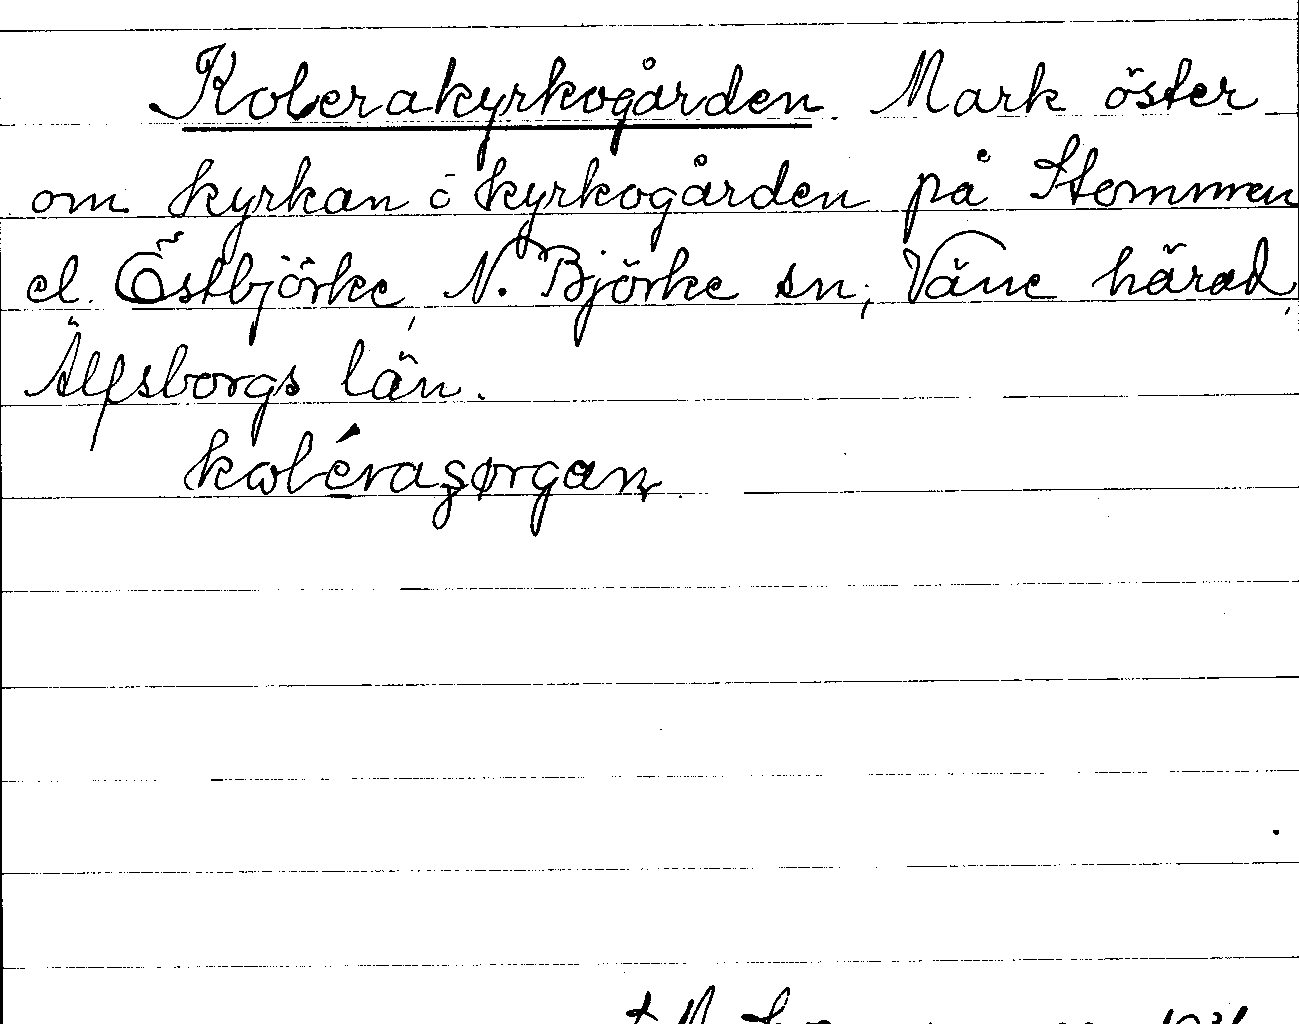 Kolerakyrkogården. Mark öster
om kyrkan o kyrkogården på Stommen
el. Östbjörke, N. Björke sn, Väne härad,
Älfsborgs län.